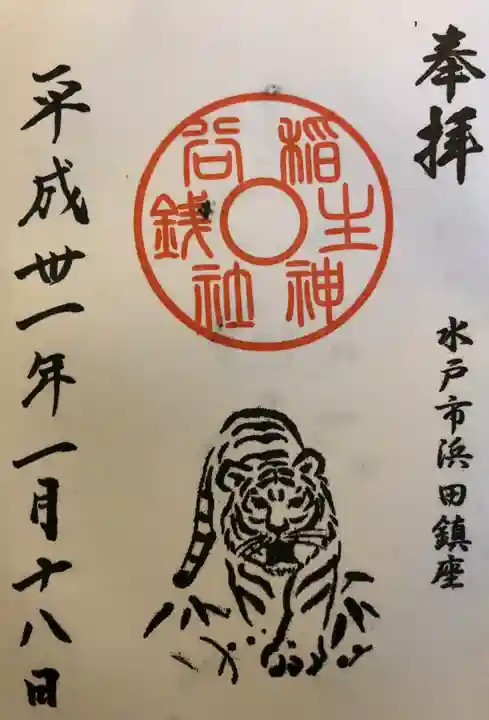 奉拝
水戸市浜田鎮座
銭谷稲生神社
平成丗一年一月十八日